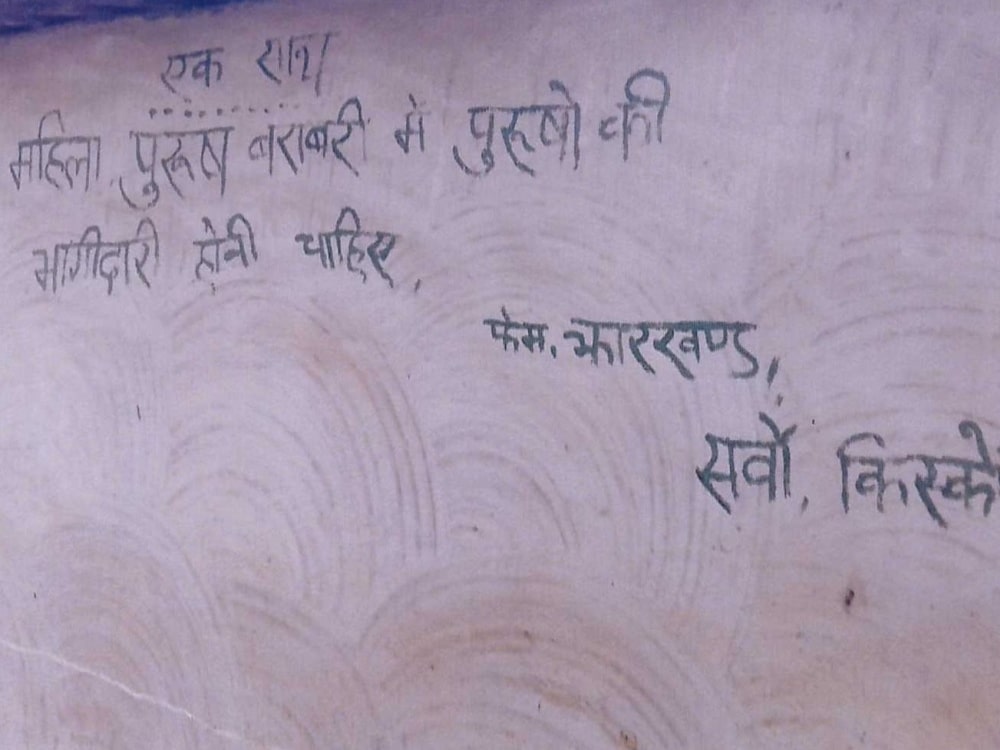 एक राय
महिला पुरूष बराबरी मे पुरूषो की
भागीदारी होनी चाहिए,
फेम, झारखण्ड,
सर्वो, किस्को